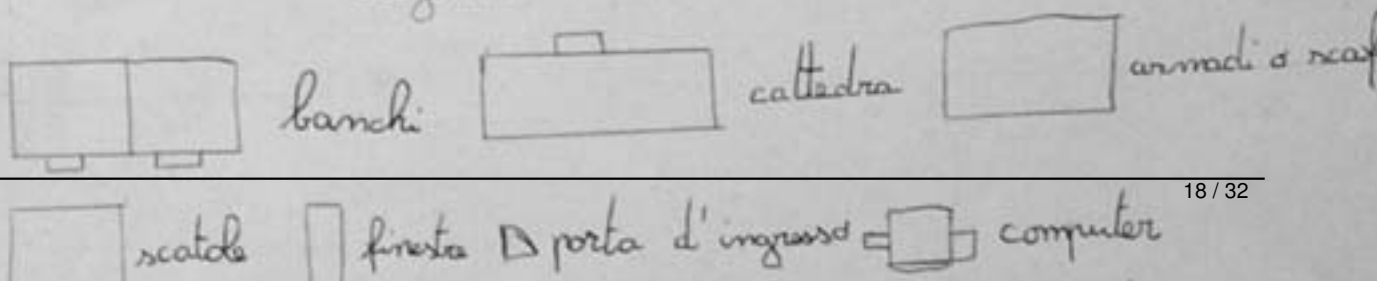 banchi cattedra armadi o scaf
18 / 32
scatole finestre porta d'ingresso computer